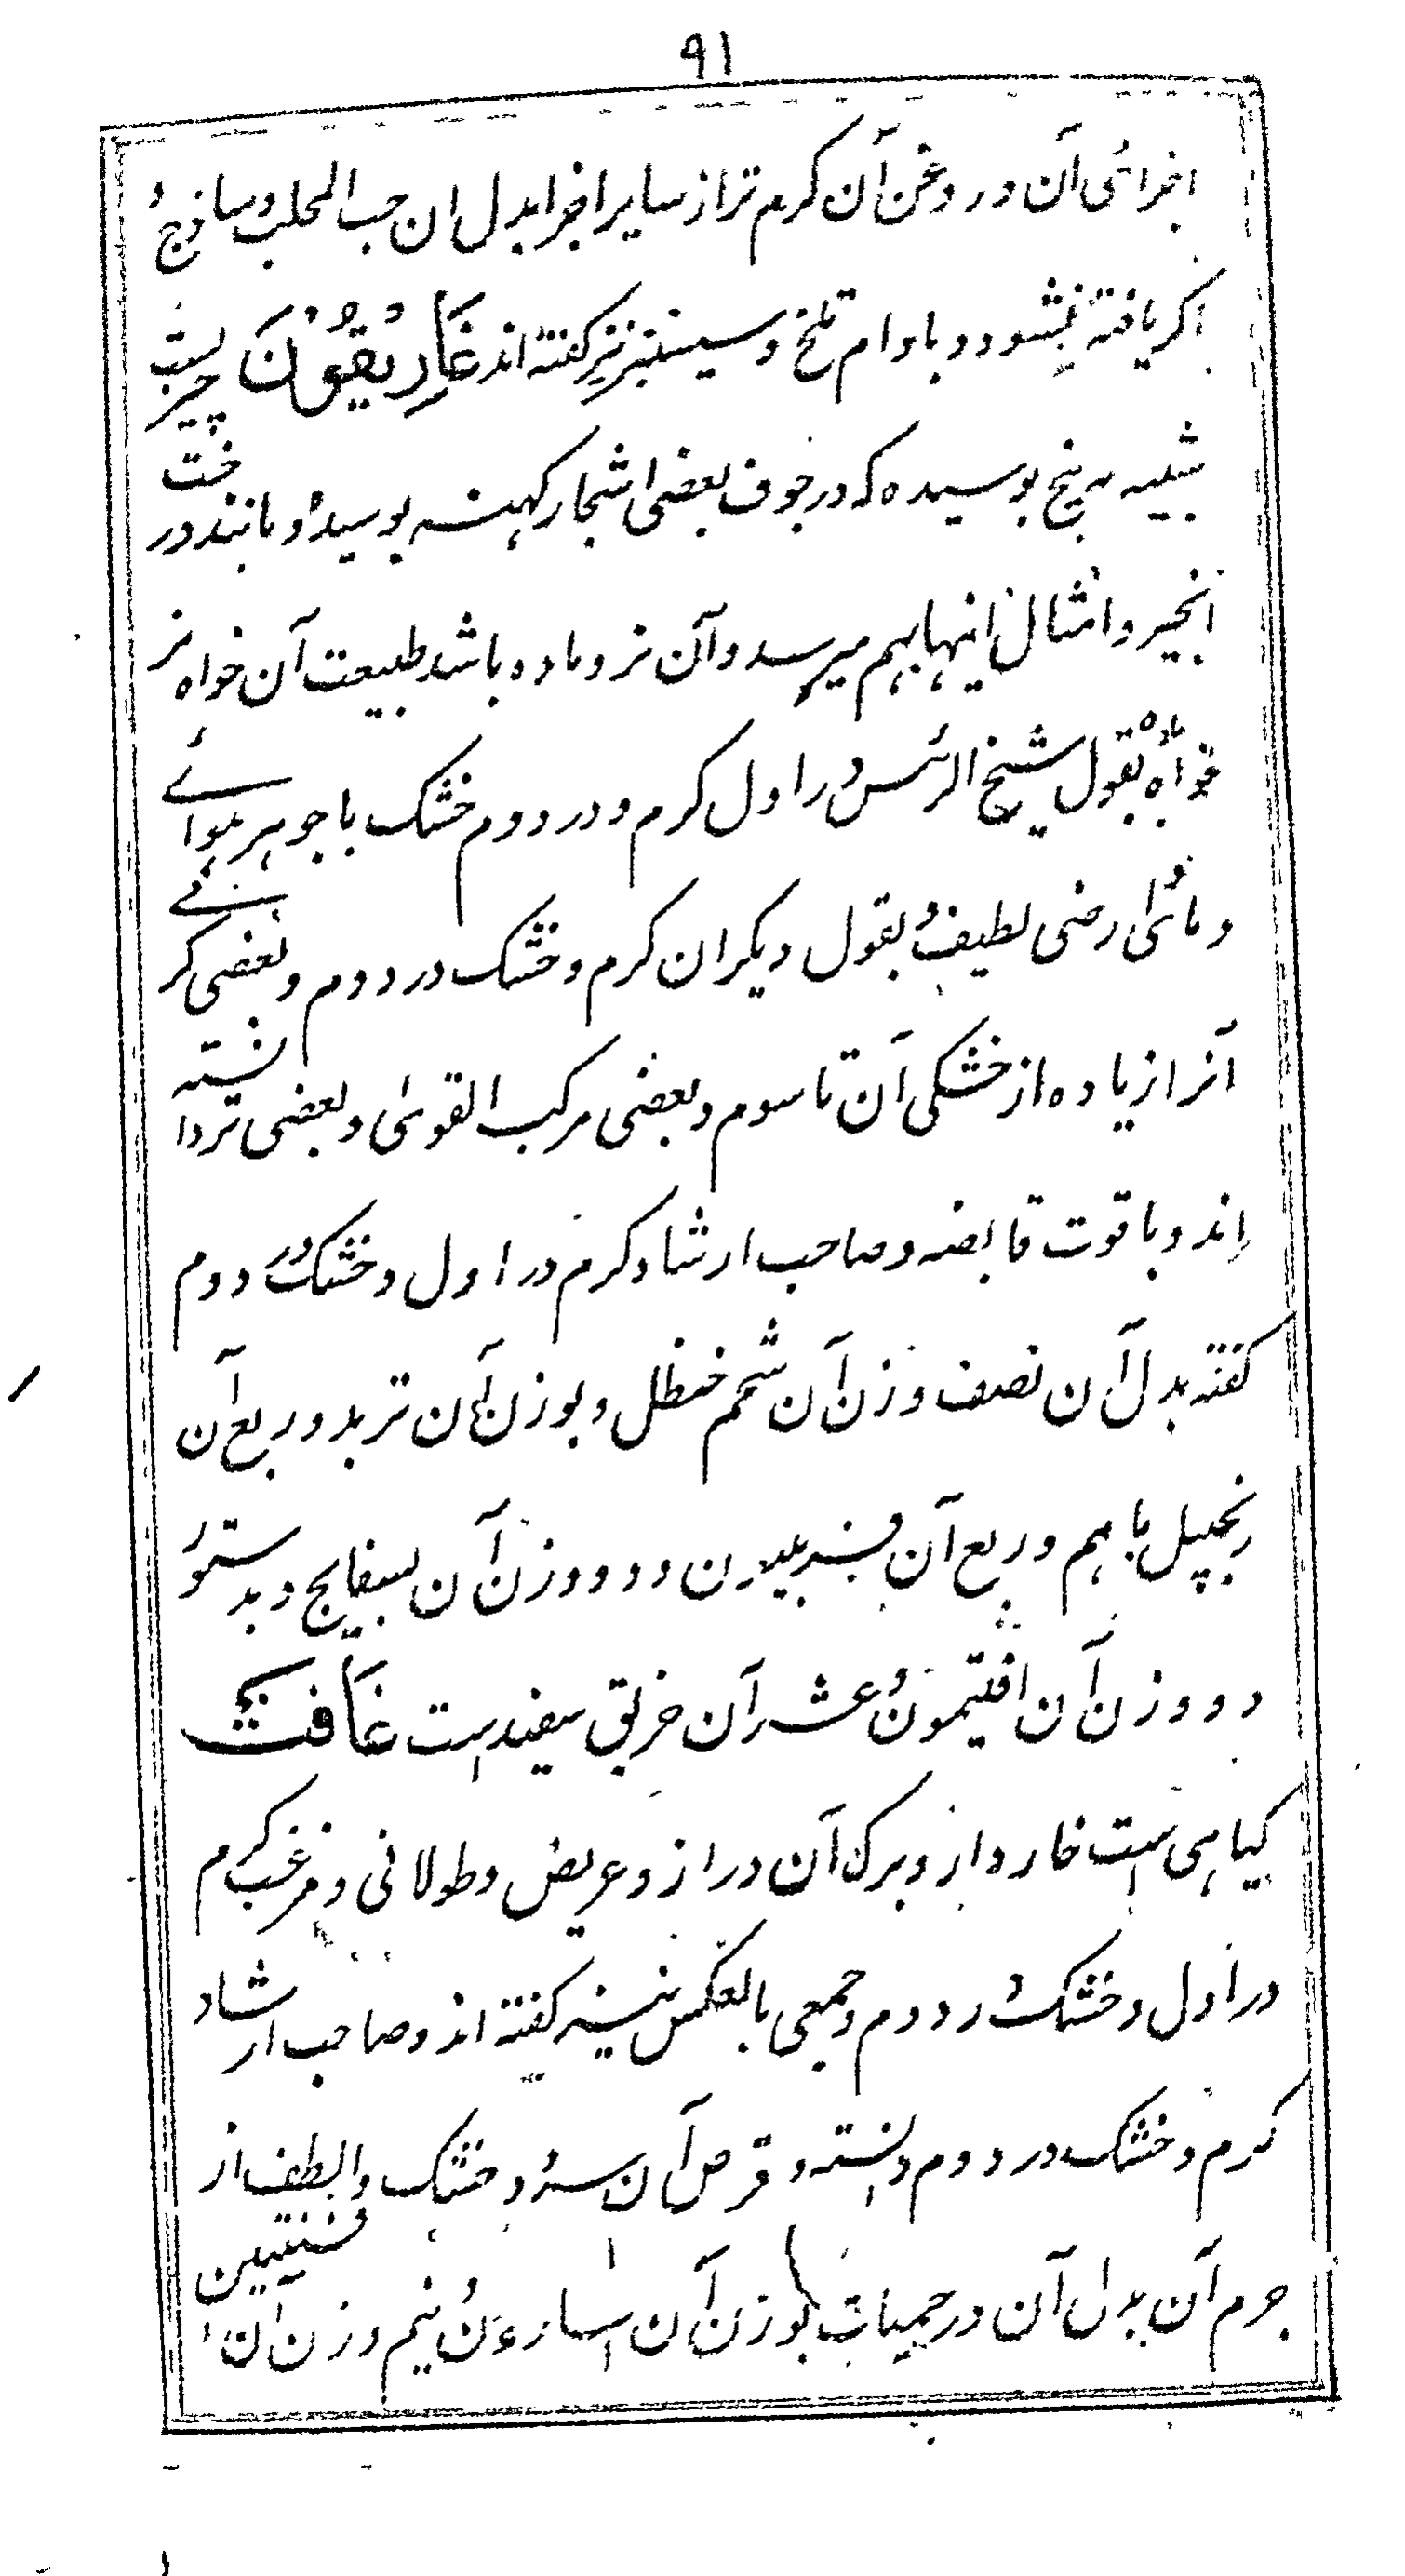 ۹۱
اجزائی آن و روغن آن کرم تر از سایر اجزا بدل ان حب المحلب و ساذج و
اکر یافته نمیشود و بادام تلخ و سیسنبر نیز کفته اند غَارِیقُونَ چیزیست
شبیه به بیخ بوسیده که در جوف بعضی اشجار کهنه بوسیده و مانند درخت
انجیر و امثال اینها بهم میرسد و آن نر و ماده باشد طبیعت آن خواه نر
خواه ماده بقول شیخ الرئیس در اول کرم و در دوم خشک با جوهر هوائے
و مائی و ارضی لطیف و بقول دیکران کرم و خشک در دوم و بعضی کرمے
آنرا زیاده از خشکی آن تا سوم و بعضی مرکب القوی و بعضی تر دانسته
اند و با قوت قابضه و صاحب ارشاد کرم در اول و خشک در دوم
کفته بدل آن نصف وزن آن شحم حنظل و بوزن آن تربد و ربع آن
زنجبیل باهم و ربع آن فربیون و دو وزن آن بسفایج و بدستور
دو وزن آن افتیمون و عشر آن خربق سفید است غَافِث
کیاهی است خاردار و برک آن دراز و عریض و طولانی و مزغب کرم
در اول و خشک در دوم و جمعی بالعکس نیز کفته اند و صاحب ارشاد
کرم و خشک در دوم دانسته و قرص آن سرد و خشک و الطف از
جرم آن بدل آن در حمیات بوزن آن اسارون و نیم وزن آن افسنتین